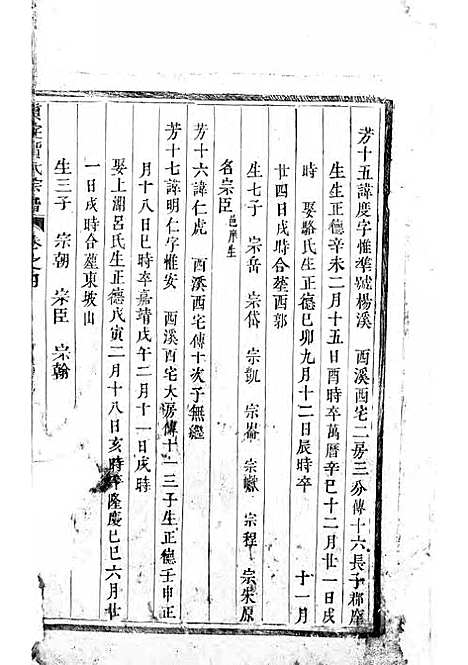 芳十五諱度字惟準號楊溪　酉溪西宅二房三分傳十六長子郡庠
生生正德辛未二月十五日酉時卒萬曆辛巳十二月廿一日戌
時　娶駱氏生正德己卯九月十二日辰時卒　十一月
廿四日戌時合塟西郭
生七子　宗岳　宗岱　宗凱　宗嵞　宗巘　宗程　宗朱原
名宗臣邑庠生
芳十六諱仁虎　酉溪西宅傳十次子無繼
芳十七諱明仁字惟安　酉溪西宅大房傳十一三子生正德壬申正
月十八日巳時卒嘉靖戊午二月十一日戌時
娶上湖呂氏生正德戊寅二月十八日亥時卒隆慶己巳六月廿
一日戌時合塟東坡山
生三子　宗朝　宗臣　宗翰
氏宗譜　卷之四